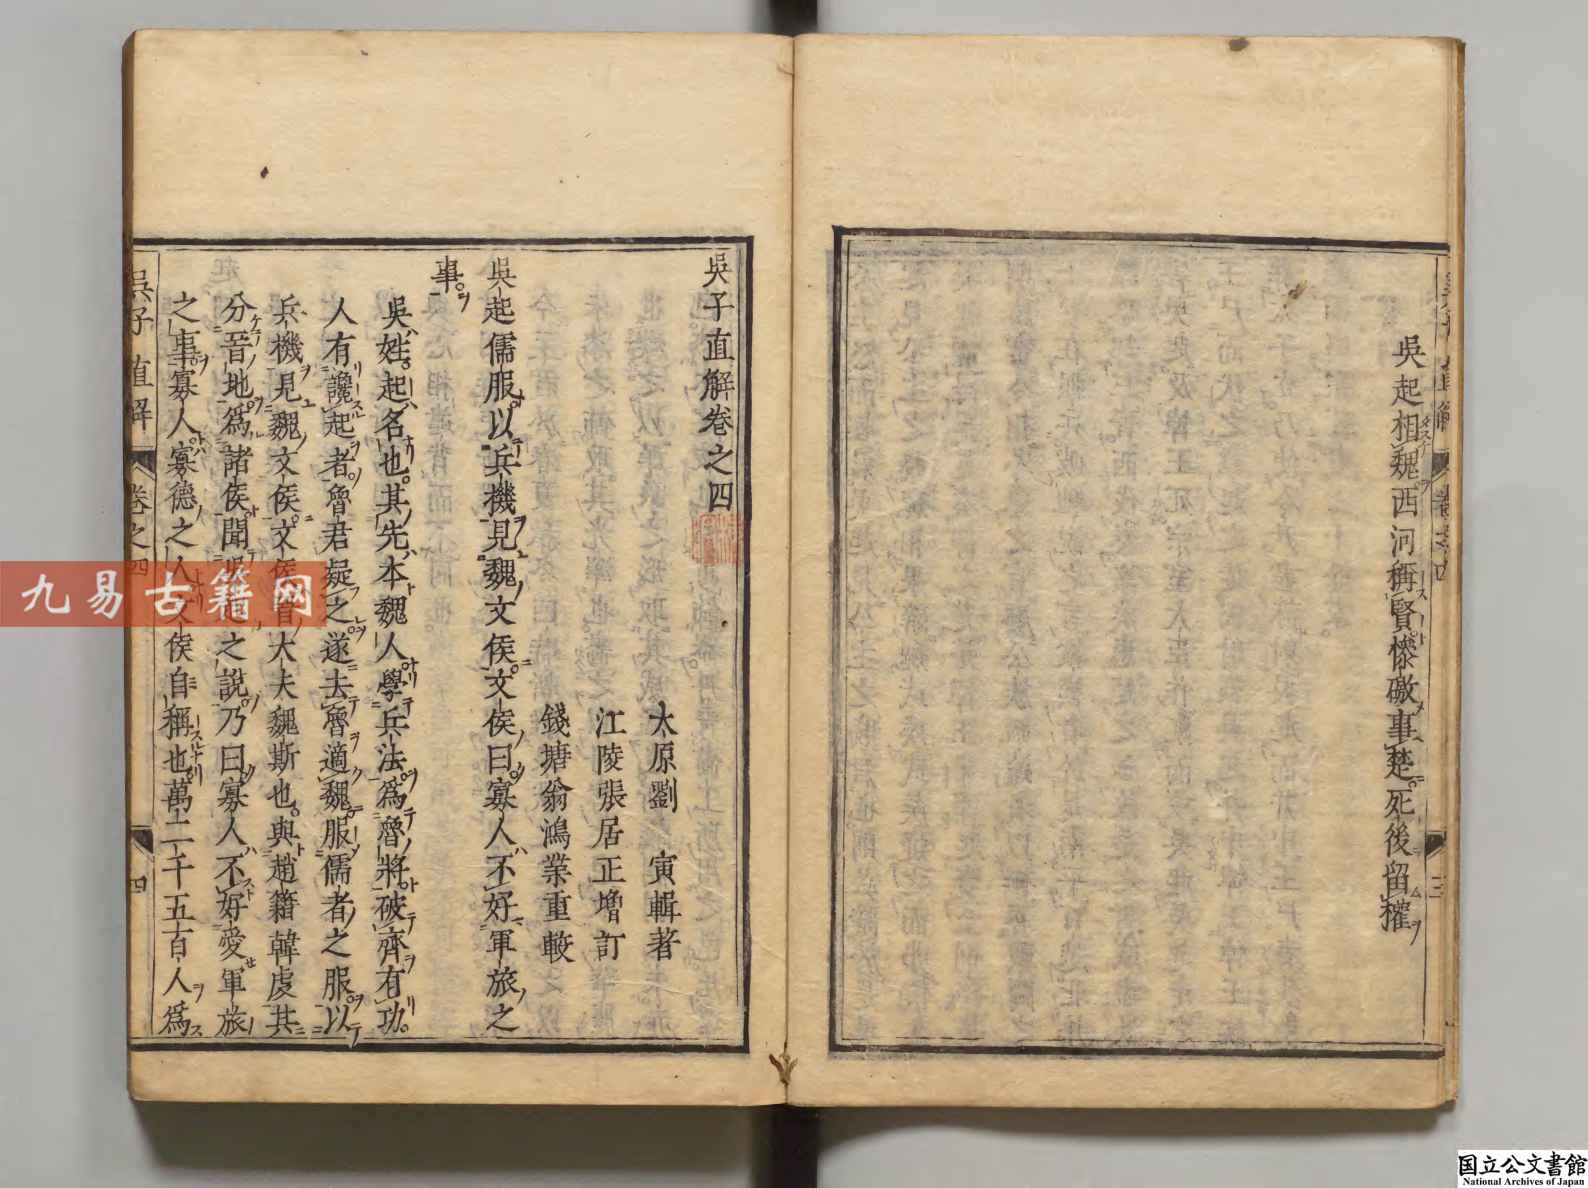 吳起相魏西河稱賢慘礉事楚死後留權
吳子直解卷之四
太原劉寅輯著
江陵張居正增訂
錢塘翁鴻業重較
吳起儒服以兵機見魏文侯文侯曰寡人不好軍旅之
事
吳姓起名也其先本魏人學兵法爲魯將破齊有功
人有讒起者魯君疑之遂去魯適魏服儒者之服以
兵機見魏文侯文侯晉大夫魏斯也與趙籍韓虔共
分晉地爲諸侯聞吳起之說乃曰寡人不好愛軍旅
之事寡人寡德之人文侯自稱也萬二千五百人爲
吳子直解 卷之四 四
九易古籍网
国立公文書館
National Archives of Japan